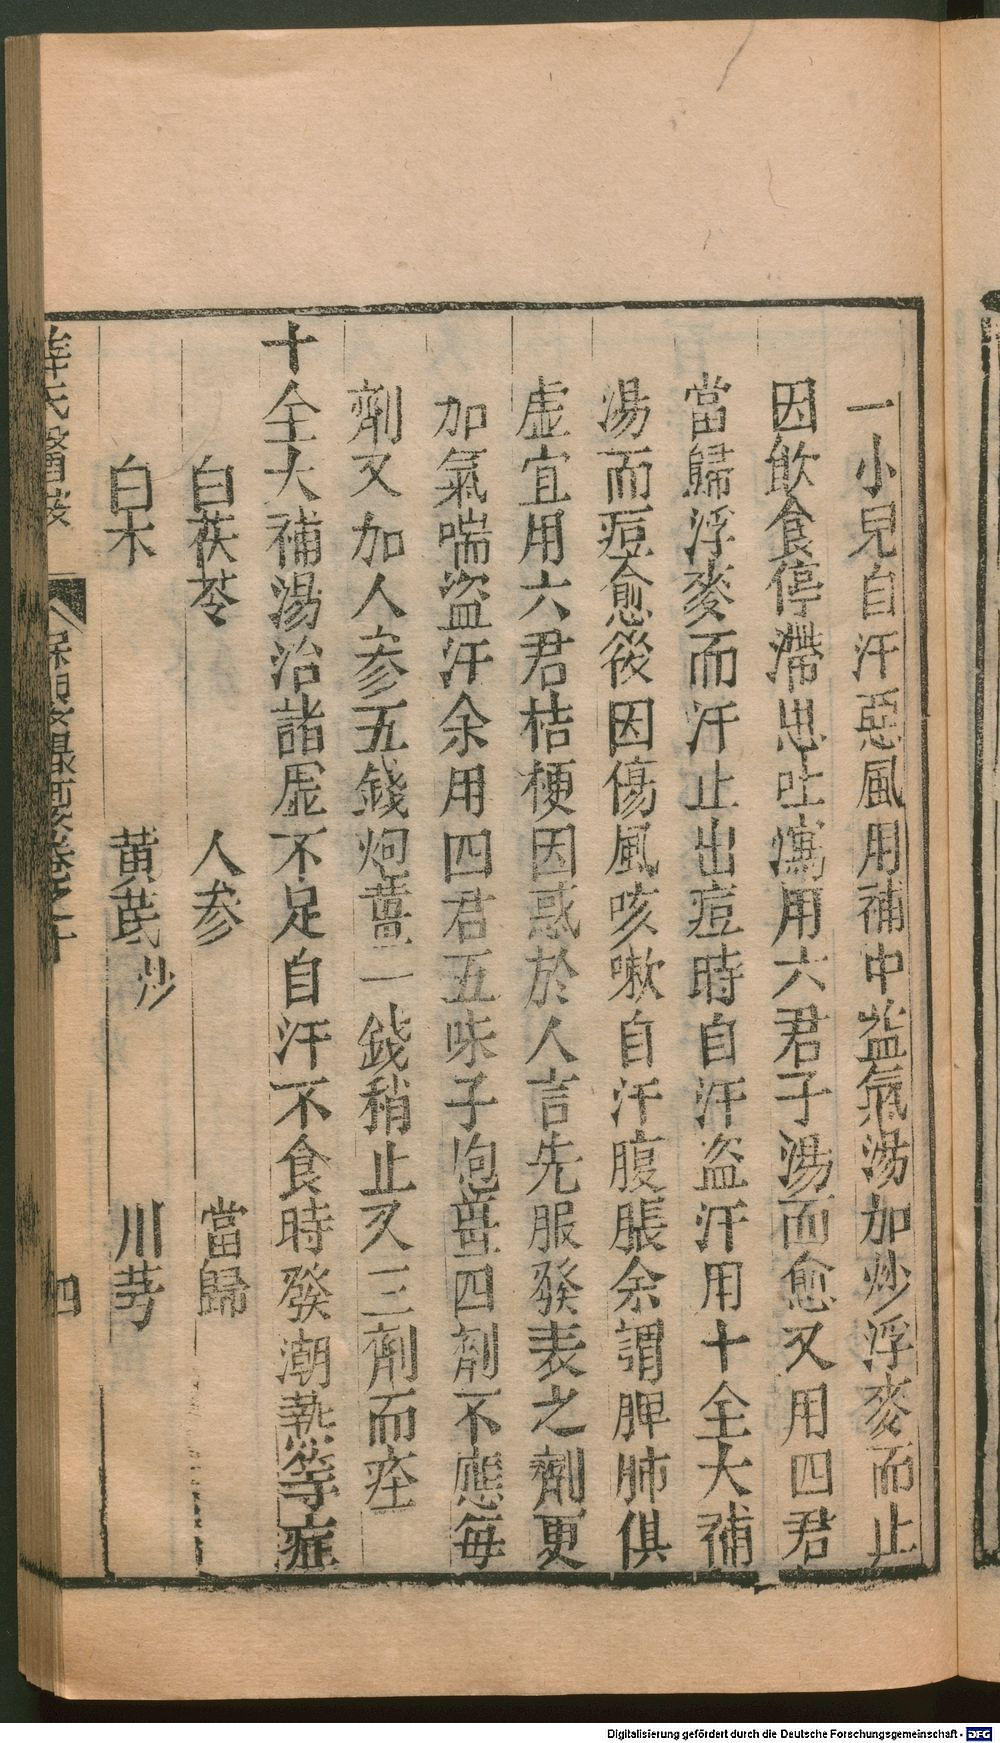 一小兒自汗惡風用補中益氣湯加炒浮麥而止
因飲食停滯患吐瀉用六君子湯而愈又用四君
當歸浮麥而汗止出痘時自汗盜汗用十全大補
湯而痘愈後因傷風咳嗽自汗腹脹余謂脾肺俱
虛宜用六君桔梗因惑於人言先服發表之劑更
加氣喘盜汗余用四君五味子炮薑四劑不應每
劑又加人參五錢炮薑一錢稍止又三劑而痊
十全大補湯治諸虛不足自汗不食時發潮熱等症
白茯苓 人參 當歸
白术 黃芪炒 川芎
薛氏醫按 保嬰撮要卷之十 四
Digitalisierung gefördert durch die Deutsche Forschungsgemeinschaft - DFG